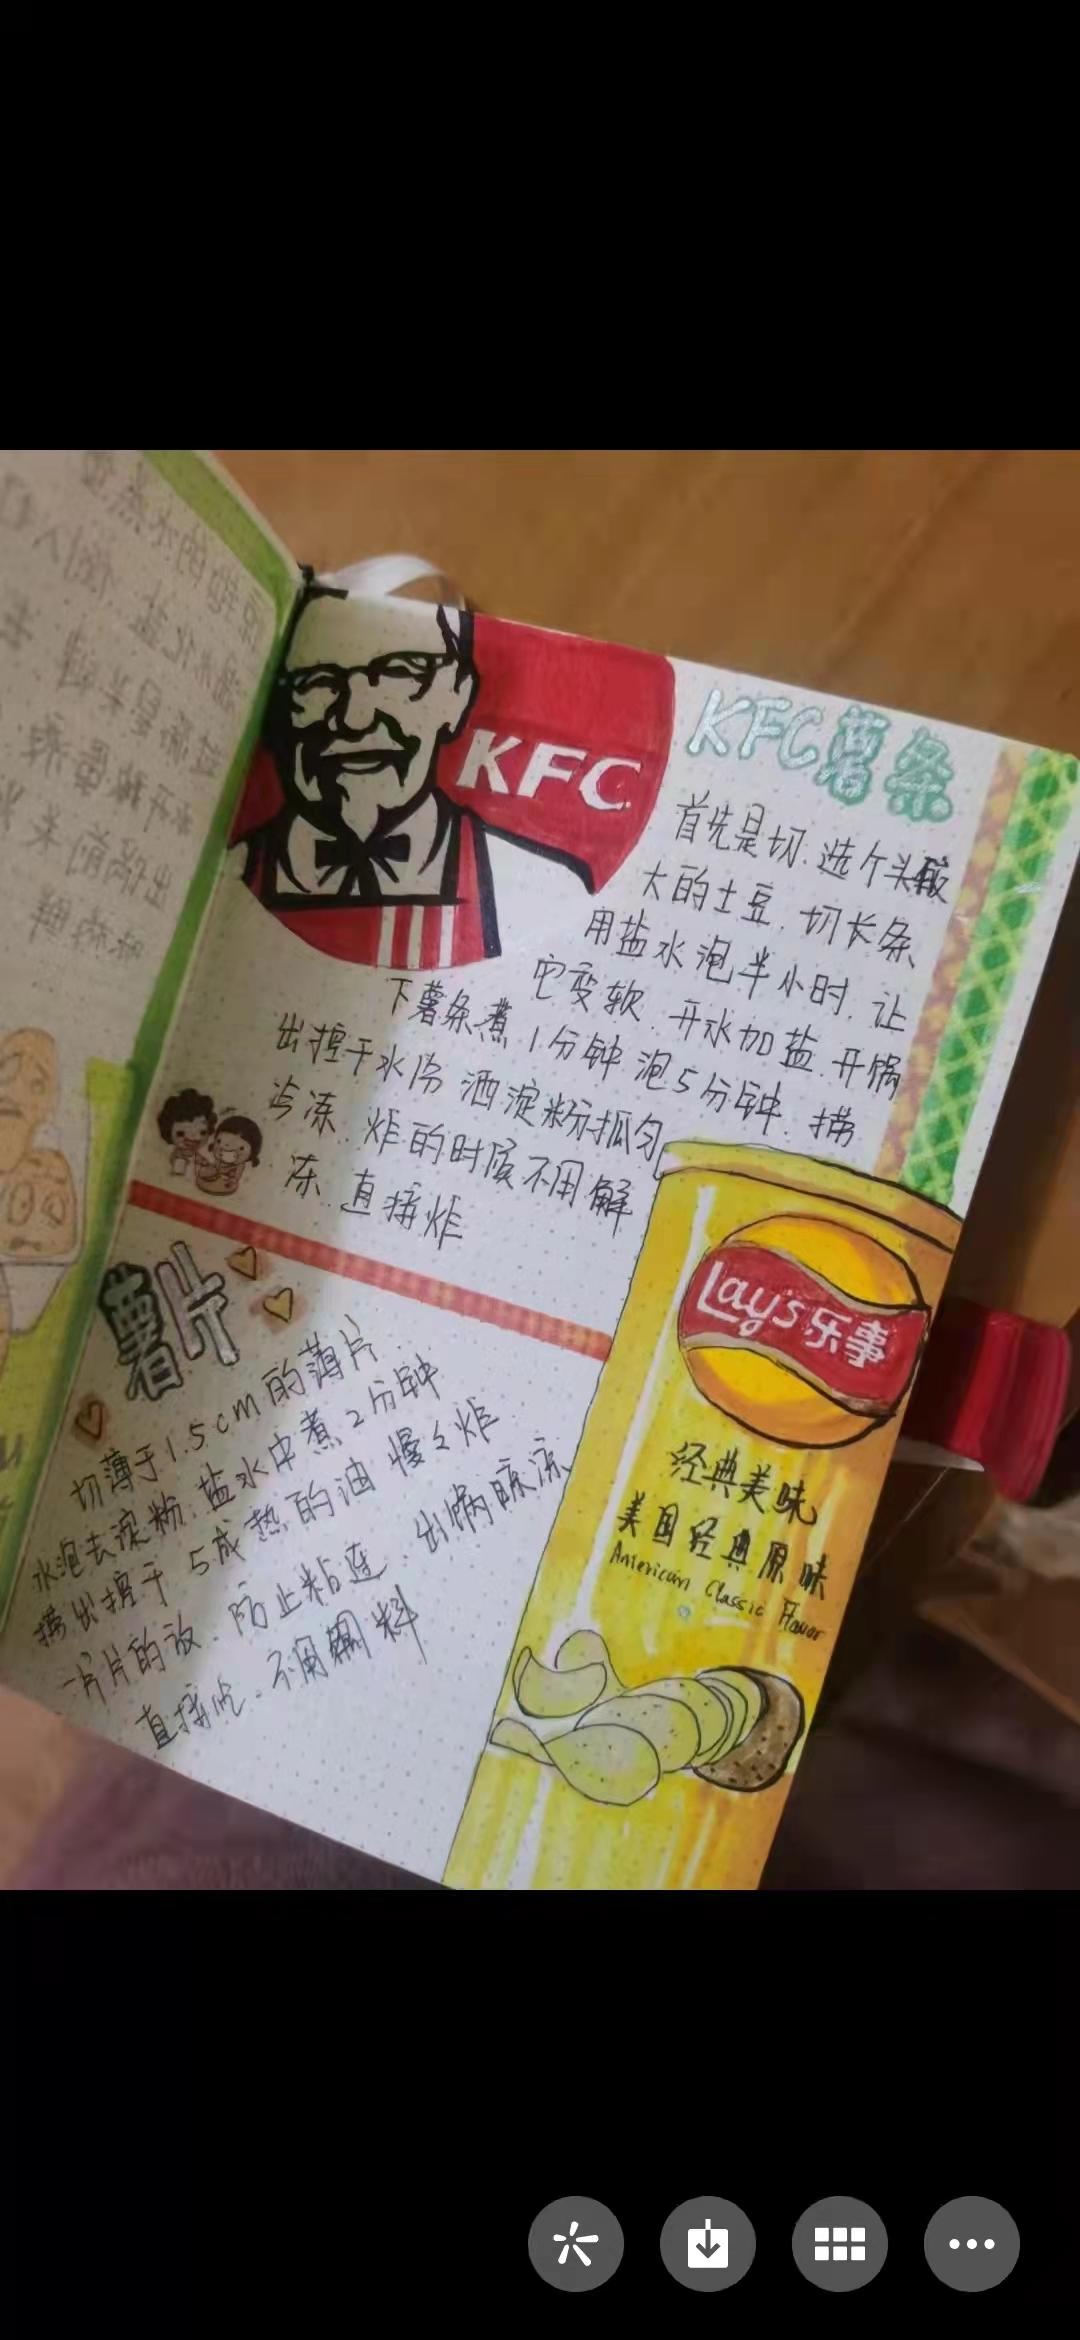 KFC
KFC薯条
首先是切.选个头较
大的土豆.切长条
用盐水泡半小时.让
它变软.开水加盐.开锅
下薯条煮1分钟泡5分钟.捞
出控干水份 洒淀粉抓匀
冷冻.炸的时候不用解
冻.直接炸
薯片
切薄于1.5cm的薄片
水泡去淀粉.盐水中煮2分钟
捞出控干 5成热的油 慢々炸
一片片的放.防止粘连.出锅
直接吃.不用 料
Lay's乐事
经典美味
美国经典原味
American Classic Flavor